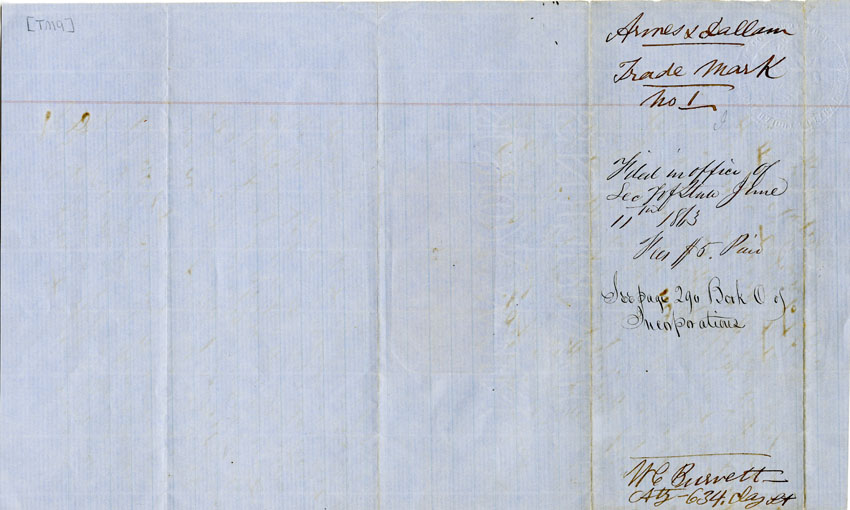 [TM9]
Armes & Dallam
Trade Mark
No 1
Filed in office of
Sec of State June
11th 1863
Fees $5. Paid
See page 290 Book C of
Incorporations
W C Burnett
Atty 634. Clay St